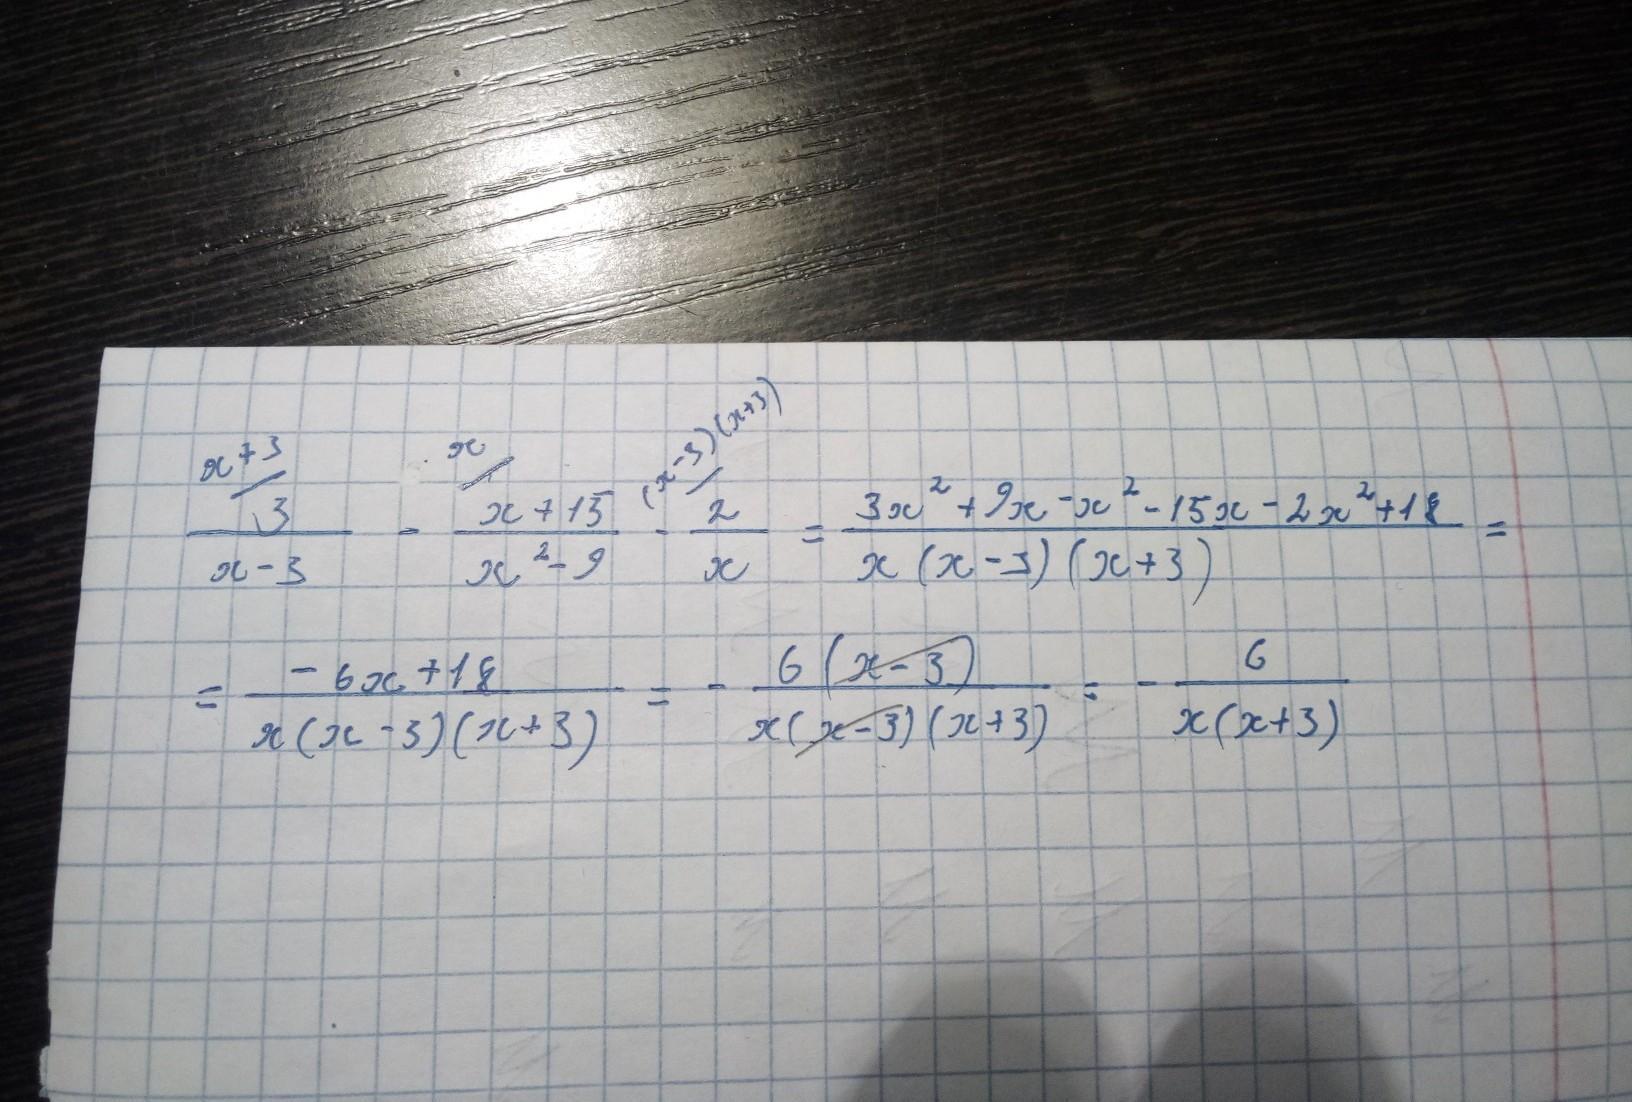 x+3 x (x-3)(x+3)
3/(x-3) - (x+15)/(x²-9) - 2/x = (3x²+9x-x²-15x-2x²+18)/(x(x-3)(x+3)) =
= (-6x+18)/(x(x-3)(x+3)) = - 6(x-3)/(x(x-3)(x+3)) = - 6/(x(x+3))